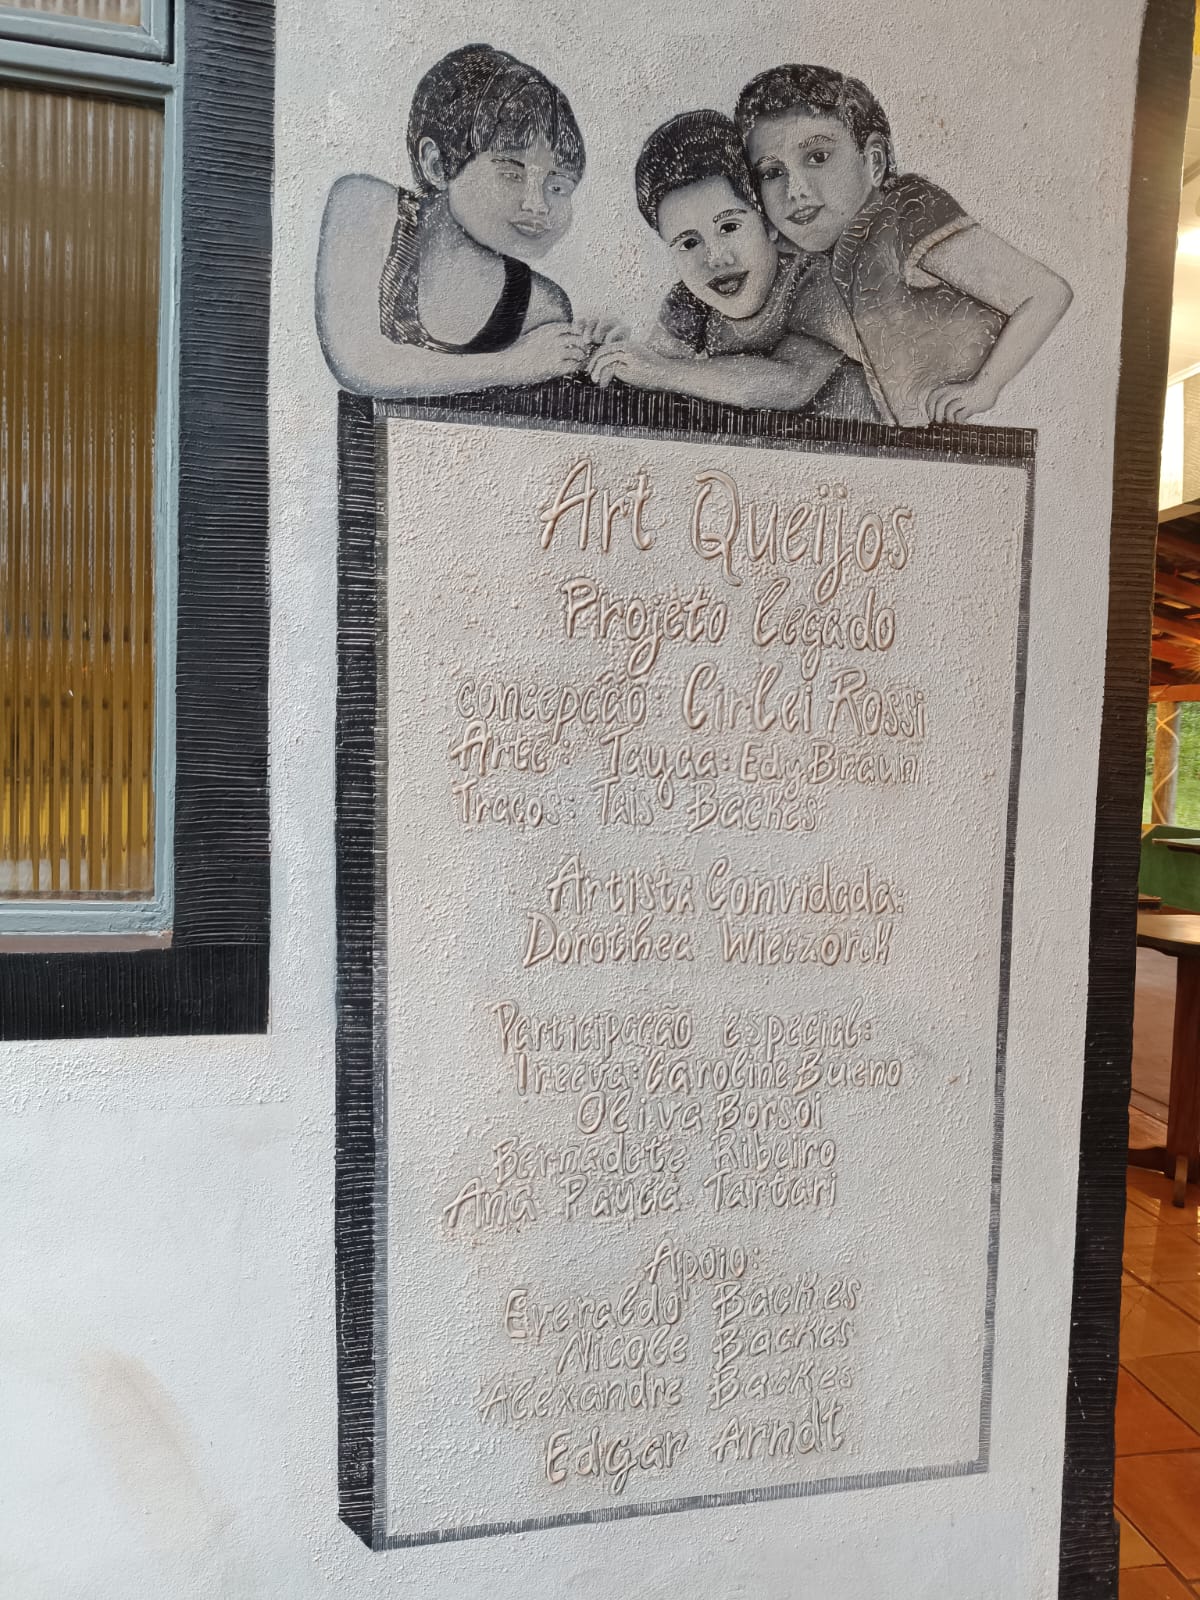 Art Queijos
Projeto Legado
concepção: Cirlei Rossi
Arte: Tayca: Edy Braun
Traços: Tais Backes
Artista Convidada:
Dorothea Wieczorek
Participação especial:
Caroline Bueno
Oliva Borsoi
Bernadete Ribeiro
Ana Paula Tartari
Apoio:
Everaldo Backes
Nicole Backes
Alexandre Backes
Edgar Arndt